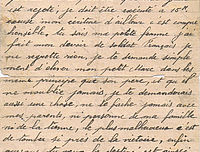 est rejeté, je doit être exécuté à 15
sous mon centime d'ailleurs c'est compré
hensible, tu sais ma petite femme j'ai
fait mon devoir de soldat français je
ne regrette rien, je te demande simple
ment d'élever mon petit dans les
même principe que son père, et qu'il
ne m'oublie jamais, je te demanderais
aussi une chose, ne te fache jamais avec
mes parents, ni personne de ma famille
ni de la tienne, le plus malheureux c'est
de tomber si près de la victoire, enfin